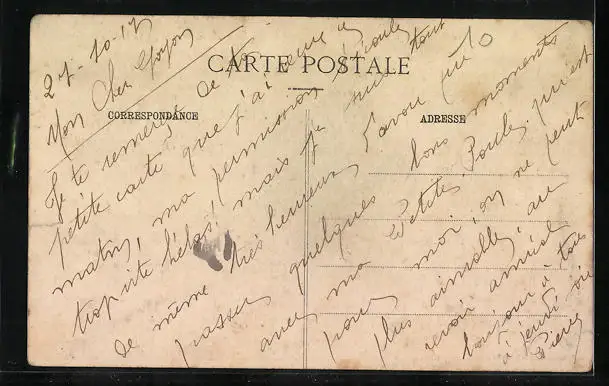 CARTE POSTALE
CORRESPONDANCE
ADRESSE
27-10-17
Mon Cher
Je te remercie de ta
petite carte que j'ai reçue ce
matin, ma permission s'écoule
trop vite hélas! mais je suis tout
de même très heureux d'avoir pu
passer quelques bons moments
avec ma Petite Paule, qui est
pour moi, on ne peut
plus aimable, au
revoir amical
bonjour à tous
à jeudi
Pierre